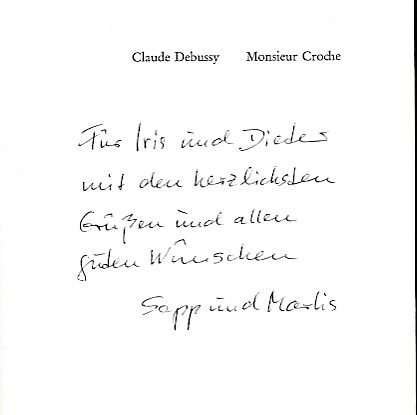 Claude Debussy Monsieur Croche
Für Iris und Dieter
mit den herzlichsten
Grüßen und allen
guten Wünschen
Sepp und Marlis